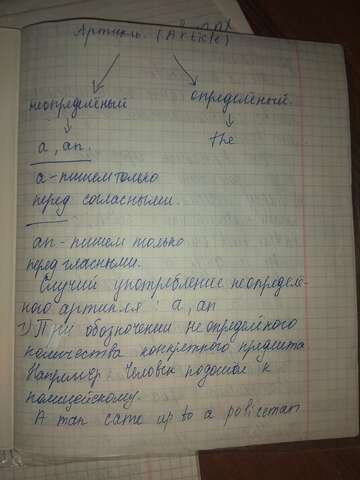 Артикль. (Article)
неопределёный определёный.
a, an. the
a - пишем только
перед согласными.
an - пишем только
перед гласными.
Случий употребление неопределё-
ного артикля : a, an
1) При обозночении неопределёного
количества конкретного предмета
Например Человек подошол к
полицейскому.
A man came up to a policeman